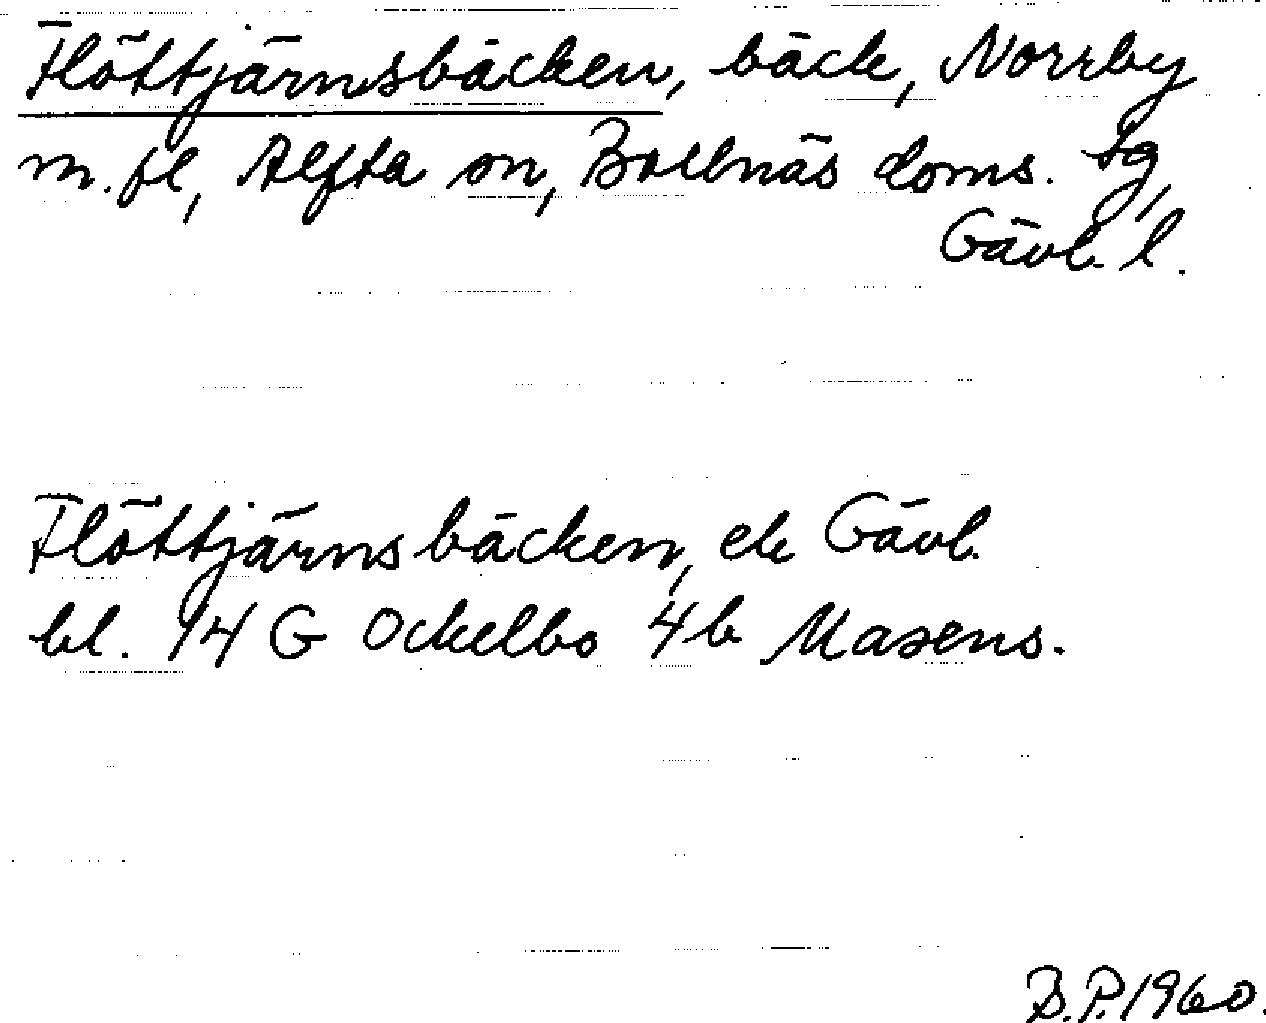 Flöttjärnsbäcken, bäck, Norrby
m.fl, Alfta sn, Bollnäs doms. tg,
Gävl. l.
Flöttjärnsbäcken, ek Gävl.
bl. 14 G Ockelbo 4b Masens.
B.P. 1960.